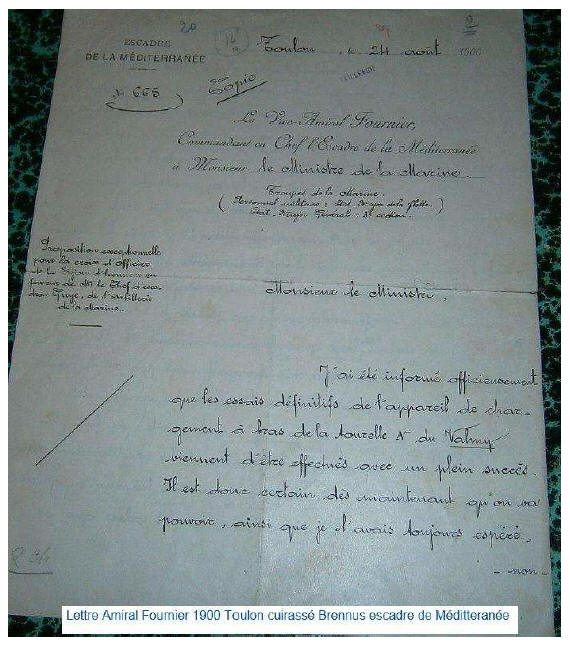 ESCADRE
DE LA MÉDITERRANÉE
N° 668
Copie
Toulon, le 24 août 1900
Le Vice-Amiral Fournier,
Commandant en Chef l'Escadre de la Méditerranée
à Monsieur le Ministre de la Marine.
Troupes de la Marine.
( Personnel militaire : État Major de la flotte. )
État-Major Général : 3e section.
Proposition exceptionnelle
pour la croix d'Officier
de la Légion d'honneur en
faveur de Mr le Chef d'esca
dron de l'artillerie
de la Marine.
Monsieur le Ministre,
J'ai été informé officieusement
que les essais définitifs de l'appareil de char-
gement à bras de la tourelle N du Valmy
viennent d'être effectués avec un plein succès.
Il est donc certain, dès maintenant qu'on va
pouvoir, ainsi que je l'avais toujours espéré,
- non -
Lettre Amiral Fournier 1900 Toulon cuirassé Brennus escadre de Méditteranée